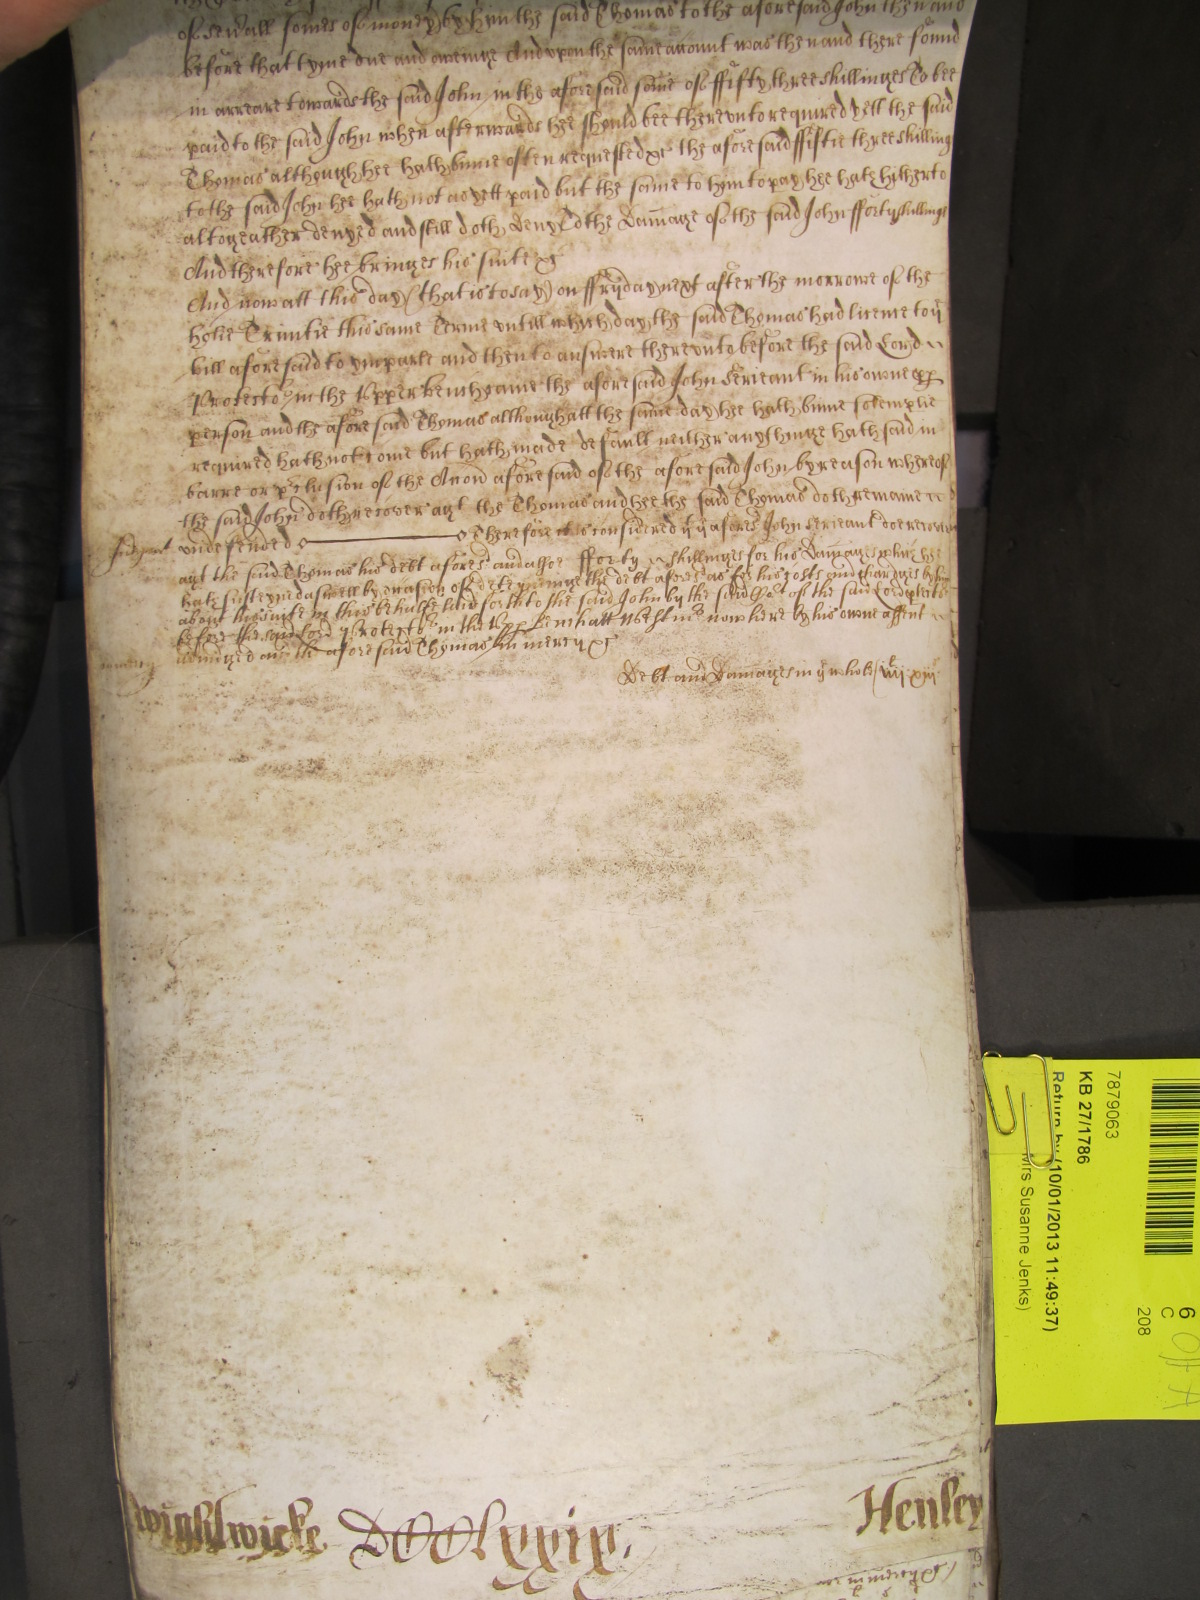 of sev'all somes of money by him the said Thomas to the aforesaid John then and
before that tyme due and oweinge And upon the same account was then and there found
in arreare towards the said John in the aforesaid some of ffifty three shillinges To bee
paid to the said John when afterwards hee should bee thereunto required yett the said
Thomas although hee hath binne often requested &c the aforesaid ffiftie three shillings
to the said John hee hath not as yett paid but the same to him to pay hee hath hitherto
altogeather denyed and still doth deny To the Damage of the said John fforty shillings
And therefore hee bringes his suite &c
And now att this day (that is to say) on ffryday next after the morrowe of the
holie Trinitie this same Terme untill which day the said Thomas had licence to ye
bill aforesaid to imparle and then to answere thereunto before the said Lord
Protector in the Upper bench came the aforesaid John Serieant in his owne
person and the aforesaid Thomas although att the same day hee hath binne solemplie
required hath not come but hath made default neither any thinge hath said in
barre or p'clusion of the Accon aforesaid of the aforesaid John by reason whereof
the said John doth recover agt the Thomas and hee the said Thomas doth remaine
undefended Therefore it is considered yt ye afores John Serieant doe recover
agt the said Thomas his debt afores and alsoe fforty shillinges for his Damages which hee
hath susteyned aswell by occasion of deteyninge the debt afores as for his costs and chardges by him
about his suite in this behalfe laid forth to the said John by the said Cort of the said Lord Protector
before the said Lord Protector in the Upper bench att Westmr now here by his owne assent
adiudged and the aforesaid Thomas in mercy &c
Debt and Damages in ye whole iiijli xiijs
Wightwicke DCClxxix.
Henley
7879063
KB 27/1786
Return by (10/01/2013 11:49:37)
Mrs Susanne Jenks)
6
C
208
Off A